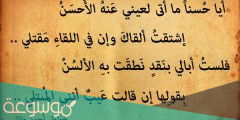 أيا حُسناً ما أتى لعيني عَنهُ الأحسَنُ
إشتقتُ ألقاكَ وإن في اللقاءِ مَقتلي ..
فلستُ أبالي بنَقدٍ نَطقَت بهِ الألسُنُ
بِقولها إن قالت عَيبٌ أنتي
موسوعة